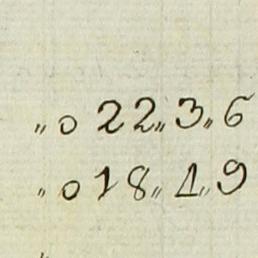 „ 0 22„ 3„ 6
„ 0 18„ 1„ 9
„